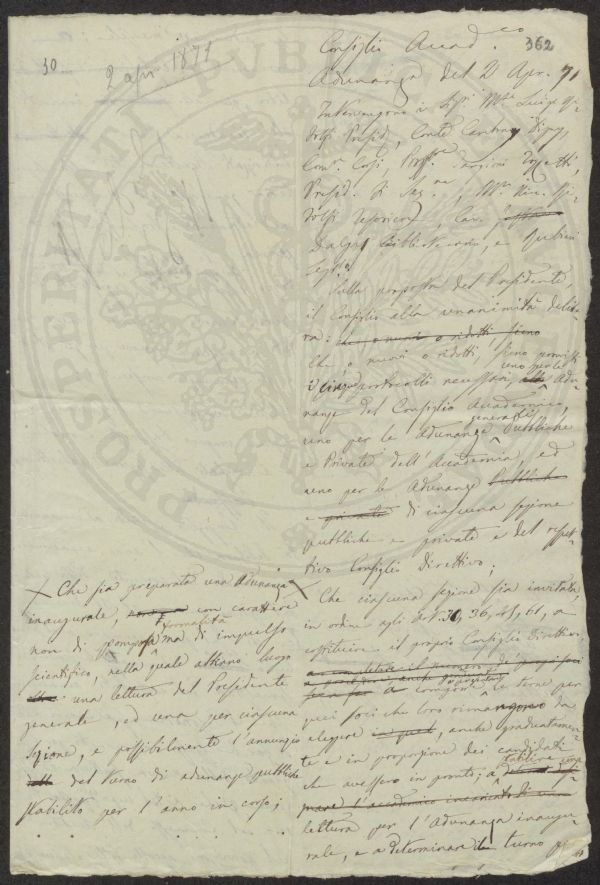 30
2 apr. 1871
362
Consiglio Accad.co
Adunanza del 2 Apr. 71
Intervengono i Sigri Mse Luigi Ri-
dolfi Presid., Conte Cambray Digny,
Presid. di Sez.ne, Mse Nic. Ri-
dolfi Tesoriere, Cav.
Dalgas Bibliotecario, e Rubieri
Segr.o
Sulla proposta del Presidente,
il Consiglio alla unanimità delibe-
ra: che o nuovi o ridotti, sieno
Che, o nuovi o ridotti, sieno
i cinque protocolli necessari, uno per le Adu-
nanze del Consiglio Accademico,
uno per le Adunanze generali pubbliche
e private dell'Accademia, ed
uno per le Adunanze pubbliche
e private di ciascuna sezione
pubbliche e private e del rispet-
tivo Consiglio Direttivo;
X Che sia preparata una Adunanza X
inaugurale, con carattere
non di pompa formalità ma di impulso
scientifico, nella quale abbiano luogo
una lettura del Presidente
generale, ed una per ciascuna
Sezione, e possibilmente l'annunzio
del turno di adunanze pubbliche
stabilito per l'anno in corso;
Che ciascuna sezione sia invitata,
in ordine agli art. 30, 36, 41, 61, a
costituire il proprio Consiglio Direttivo,
a completare il numero de' propri soci
le terne per
quei soci che loro rimangono da
eleggere, anche gradatamen-
te e in proporzione dei candidati
che avessero in pronto; a
lettura per l'Adunanza inaugu-
rale, e a determinare il turno